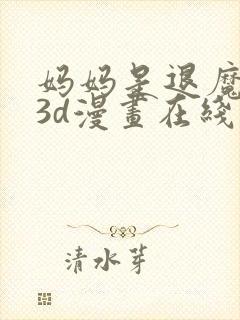 妈妈是退魔
3d漫畫在綫
清水芽